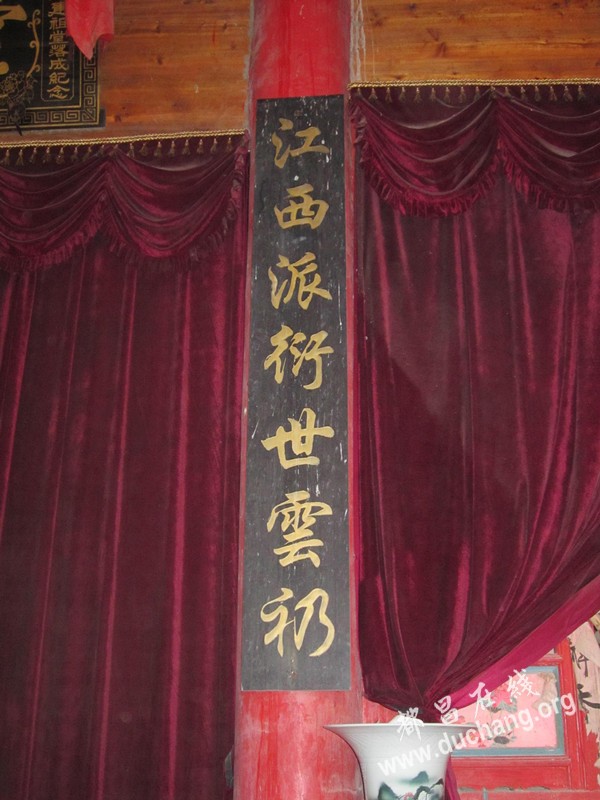 江西派衍世雲礽
祖堂落成紀念
都昌在线
www.duchang.org